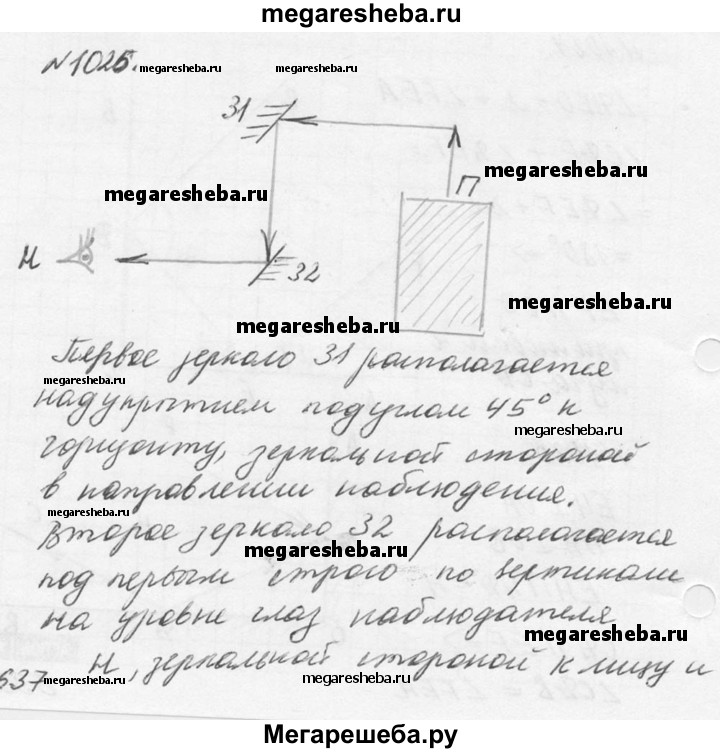 megaresheba.ru
№1025.
megaresheba.ru
megaresheba.ru
З1
megaresheba.ru
П
megaresheba.ru
Н
З2
megaresheba.ru
megaresheba.ru
Первое зеркало З1 располагается
megaresheba.ru
над укрытием под углом 45° к
megaresheba.ru
горизонту, зеркальной стороной
в направлении наблюдения.
megaresheba.ru
Второе зеркало З2 располагается
megaresheba.ru
под первым строго по вертикали
на уровне глаз наблюдателя
megaresheba.ru
Н, зеркальной стороной к лицу и
637
megaresheba.ru
megaresheba.ru
Мегарешеба.ру